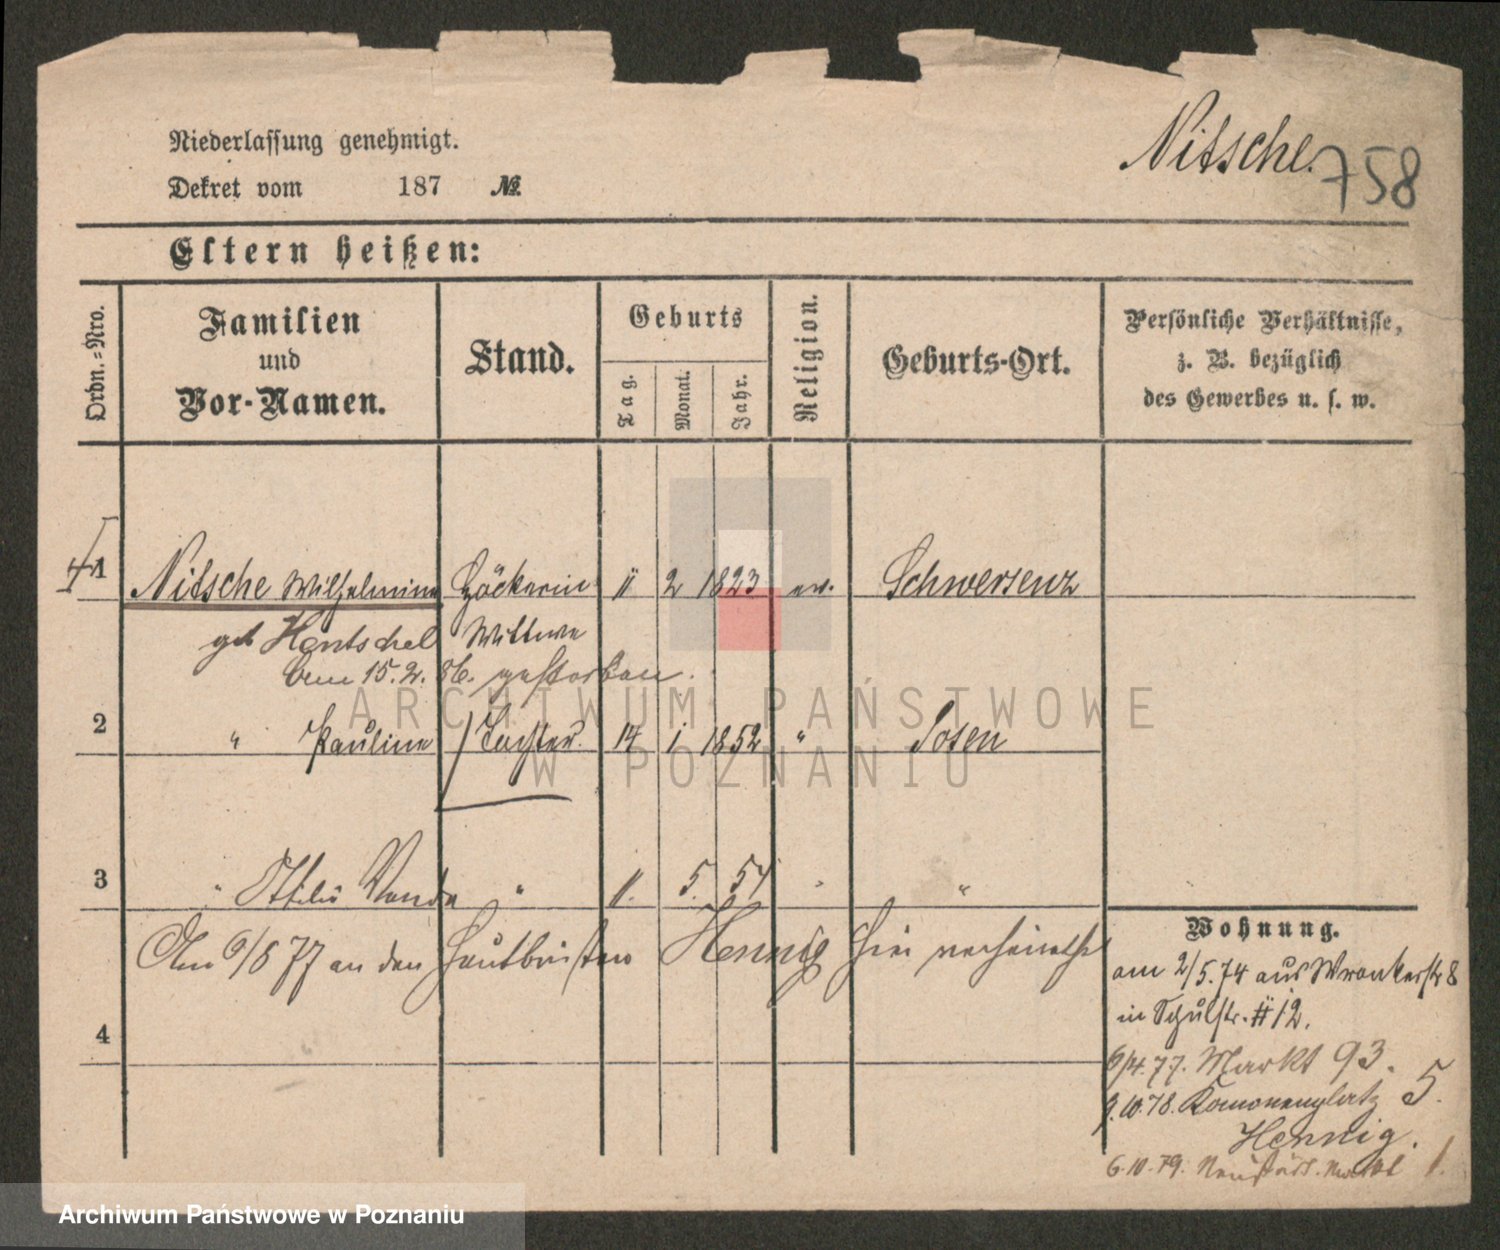 Niederlassung genehmigt.
Dekret vom 187 №
Nitsche. 758
Eltern heißen:
Ordn.-Nro.
Familien
und
Vor-Namen.
Stand.
Geburts
Tag.
Monat.
Jahr.
Religion.
Geburts-Ort.
Persönliche Verhältnisse,
z. B. bezüglich
des Gewerbes u. s. w.
1 Nitsche Wilhelmine Höckerin 11 2 1823 ev. Schwersenz
geb Hentschel Wittwe
am 15.2.86. gestorben.
2 " Pauline Tochter 14 1 1852 " Posen
3 " Ottilie Wanda " 11. 5. 57 " "
Am 6/8 77 an den Hautboisten Hennig hier verheirathet
4
Wohnung.
am 2/5.74 aus Wronkerstr 8
in Schulstr. # 12.
6/4.77. Markt 93.
9.10.78. Kanonenplatz 5.
Hennig.
6.10.79. Neustädt. Markt 1.
ARCHIWUM PAŃSTWOWE
W POZNANIU
Archiwum Państwowe w Poznaniu